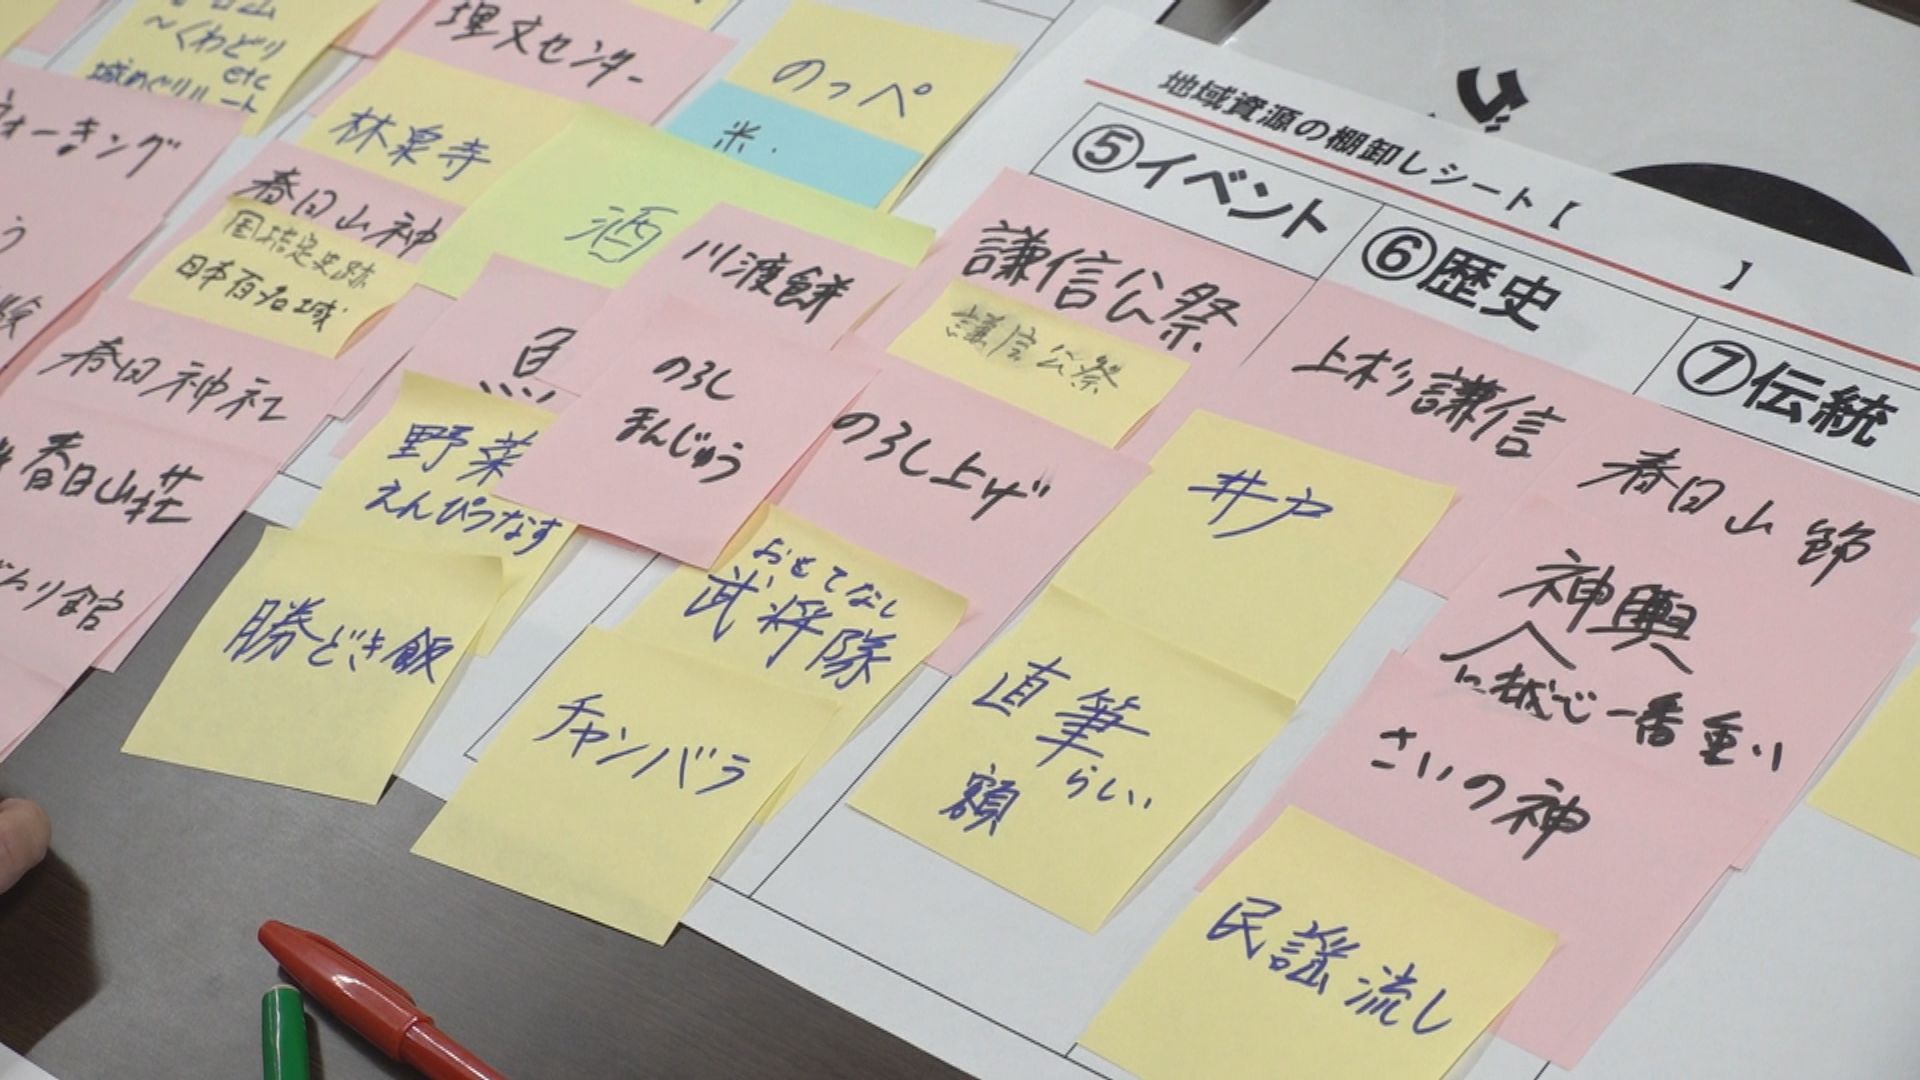 地域資源の棚卸しシート【　　　】
⑤イベント
⑥歴史
⑦伝統
～くわどり
etc
城めぐりルート
ウォーキング
埋文センター
林泉寺
春日山神
国指定史跡
日本百名城
春日神社
春日山荘
のっぺ
米
酒
川渡餅
魚
のろし
まんじゅう
野菜
えんぴつなす
勝どき飯
謙信公祭
謙信公祭
のろし上げ
おもてなし
武将隊
チャンバラ
上杉謙信
井戸
直筆
らしい
額
春日山節
神輿
一番重い
さいの神
民謡流し